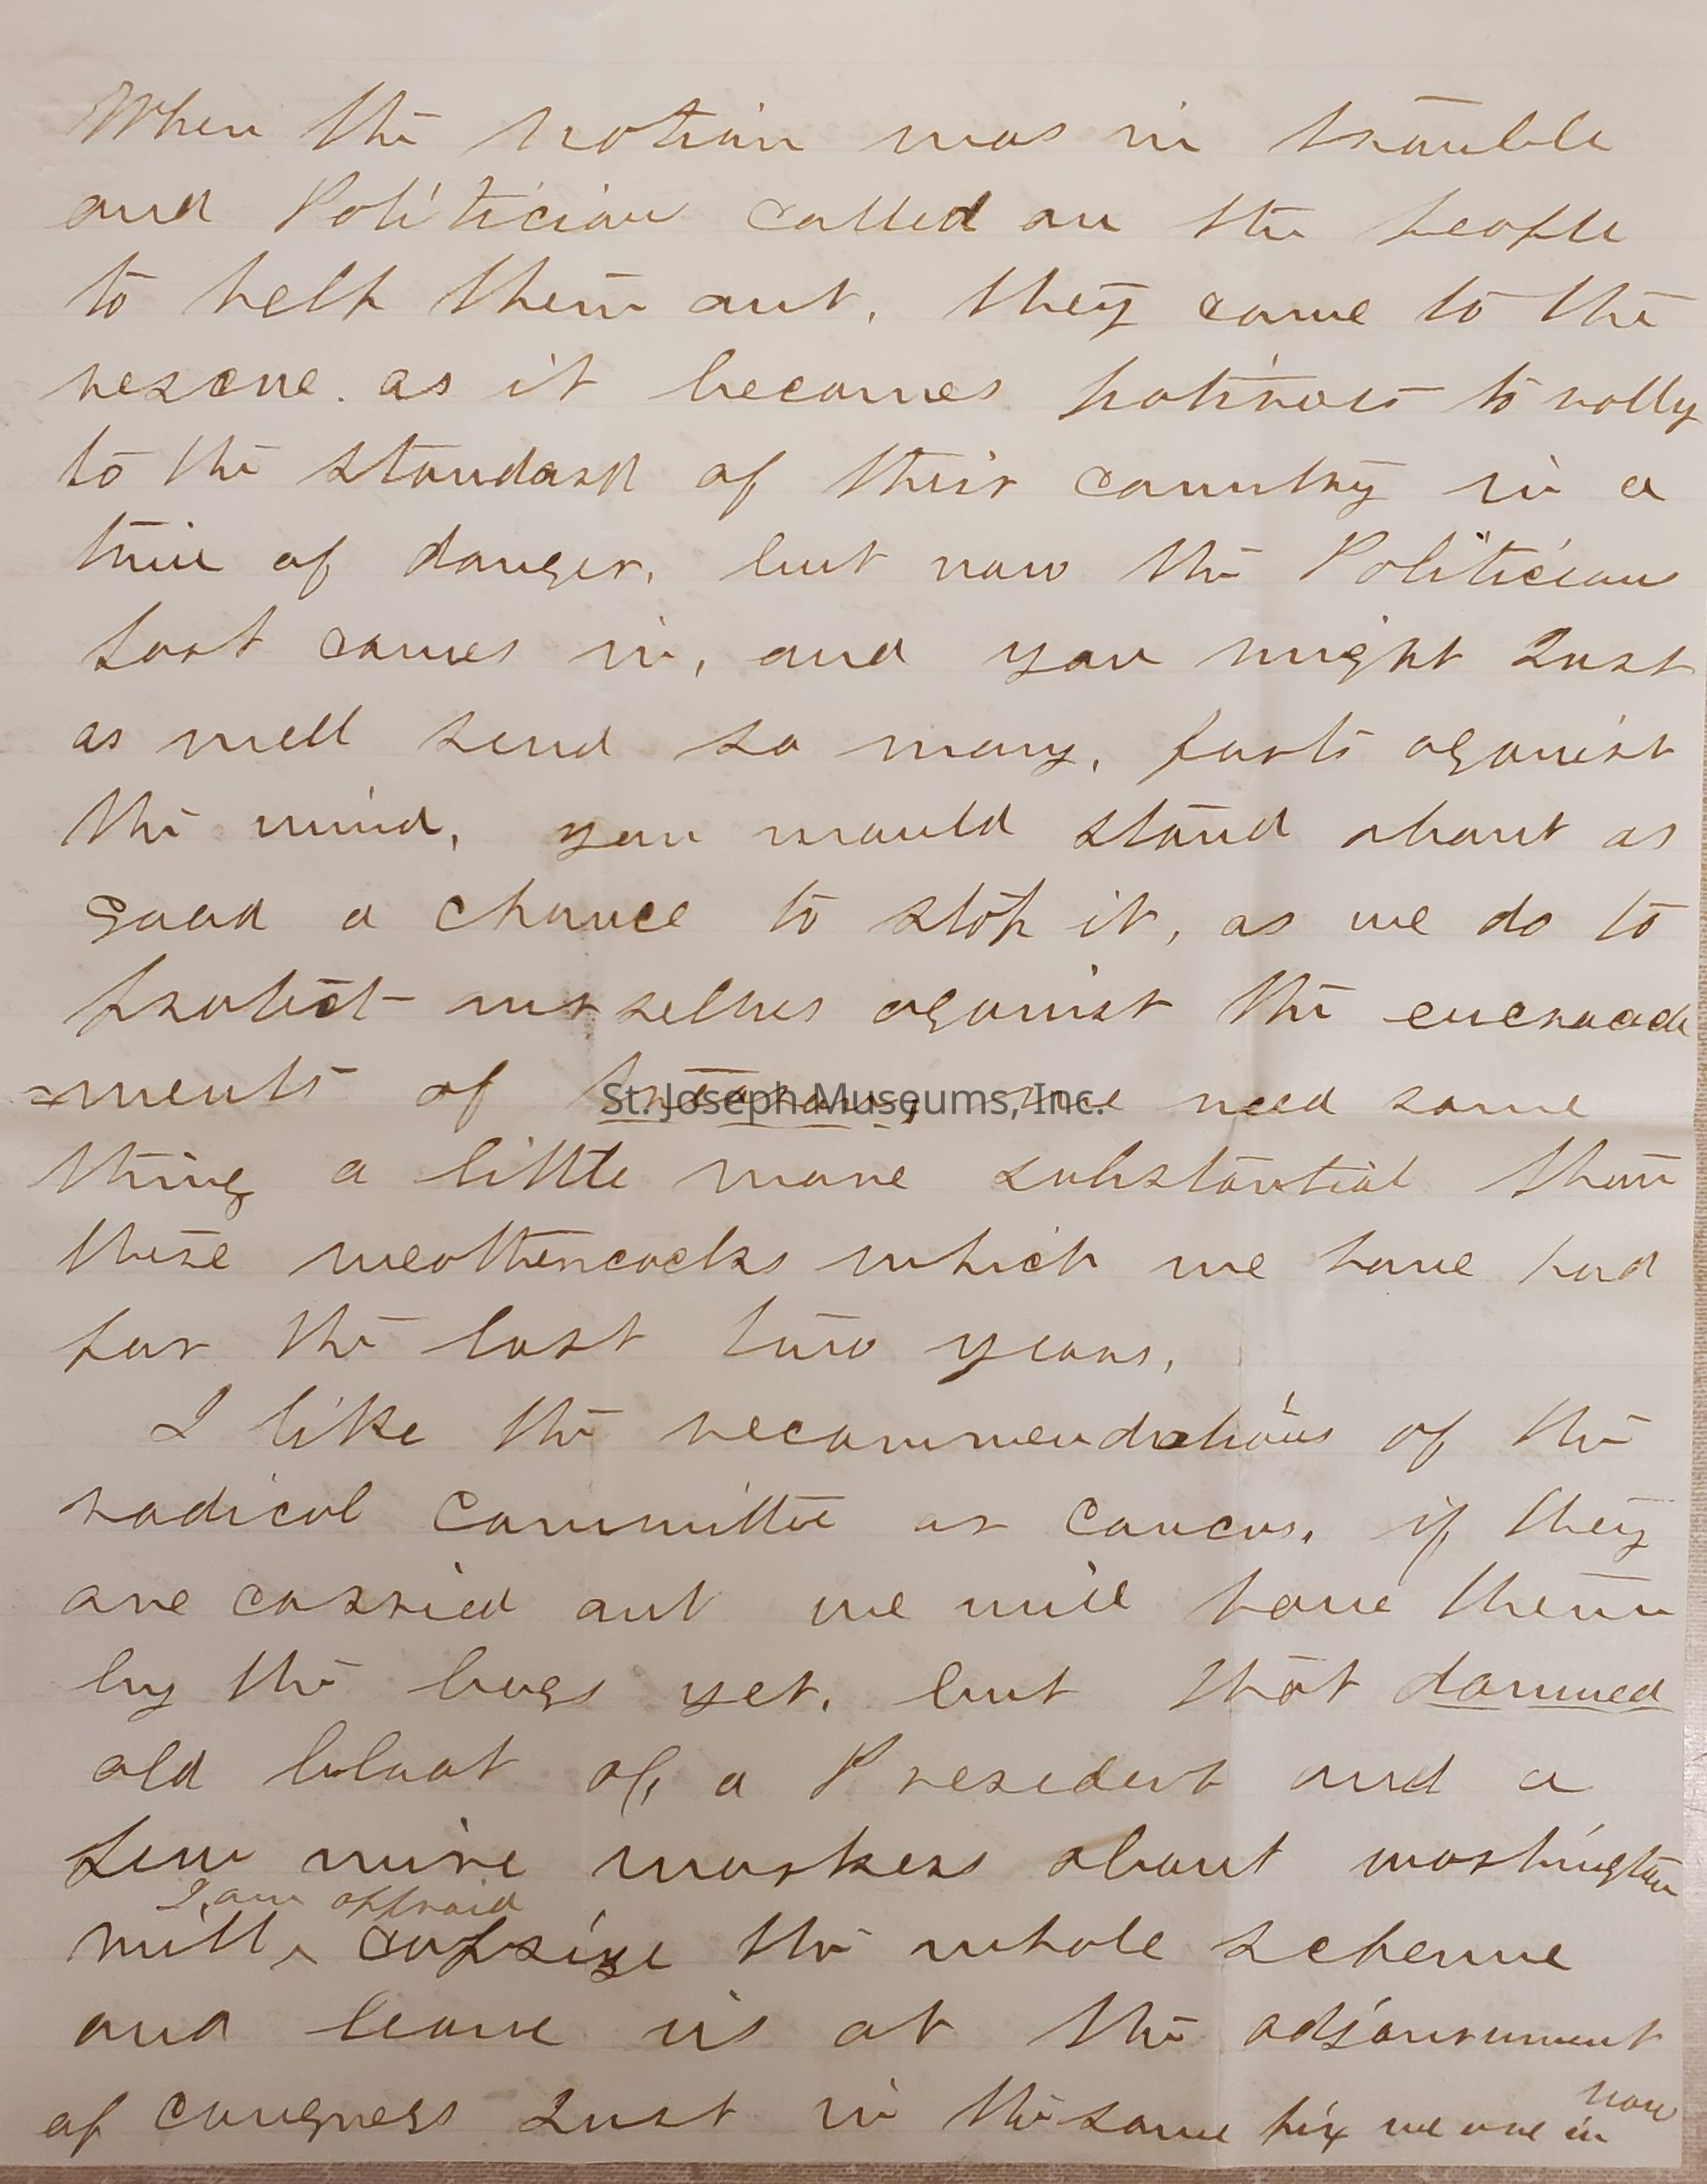 When the nation was in trouble
and Politician called on the people
to help them out, they came to the
rescue. as it becomes patriots to rally
to the standard of their country in a
time of danger, but now the Politician
part comes in, and you might Just
as well send so many, farts against
the wind, you would stand about as
good a chance to stop it, as we do to
protect ourselves against the encroach
=ments of treason, we need some
thing a little more substantial than
these weathercocks which we have had
for the last two years,
I like the recommendations of the
radical Committee or Caucus, if they
are carried out we will have them
by the bugs yet, but that damned
old bloat of a President and a
few wire workers about washington
I am affraid
will, ^ capsize the whole scheme
and leave us at the adjournment
of congress Just in the same fix we are in now
St. Joseph Museums, Inc.